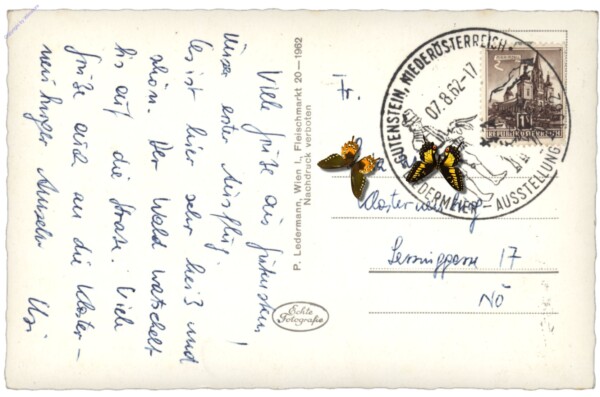 Viel Grüße aus Gutenstein!
Unser erster Ausflug.
Es ist hier sehr heiß und
schön. Der Wald
bis auf die Straße. Viele
Grüße auch an die Kloster-
neuburger
Usi
P. Ledermann, Wien I., Fleischmarkt 20—1962
Nachdruck verboten
Echte
Fotografie
GUTENSTEIN, NIEDERÖSTERREICH
07.8.62-17
BIEDERMEIER-AUSSTELLUNG
REPUBLIK ÖSTERREICH
Fr.
Klosterneuburg
Lessinggasse 17
NÖ